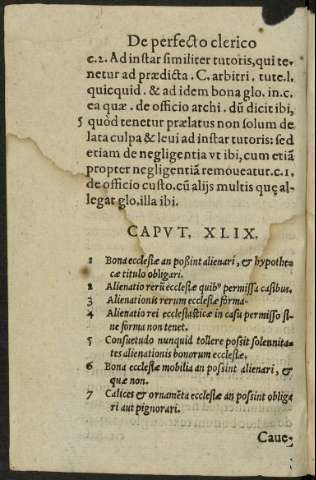 De perfecto clerico
c.2. Ad instar similiter tutoris, qui te-
netur ad prædicta. C. arbitri. tute.l.
quicquid. & ad idem bona glo. in.c.
ea quæ. de officio archi. dũ dicit ibi,
5 quòd tenetur prælatus non solum de
lata culpa & leui ad instar tutoris: sed
etiam de negligentia vt ibi, cum etiã
propter negligentiã remoueatur.c.1.
de officio custo.cũ alijs multis quę al-
legat glo.illa ibi.
CAPVT. XLIX.
1 Bona ecclesiæ an poßint alienari, & hypothe-
cæ titulo obligari.
2 Alienatio rerũ ecclesiæ quibꝰ permissa casibus.
3 Alienationis rerum ecclesiæ forma.
4 Alienatio rei ecclesiasticæ in casu permisso si-
ne forma non tenet.
5 Consuetudo nunquid tollere possit solennita-
tes alienationis bonorum ecclesiæ.
6 Bona ecclesiæ mobilia an possint alienari, &
quæ non.
7 Calices & ornamẽta ecclesiæ an possint obliga
ri aut pignorari.
Caue-